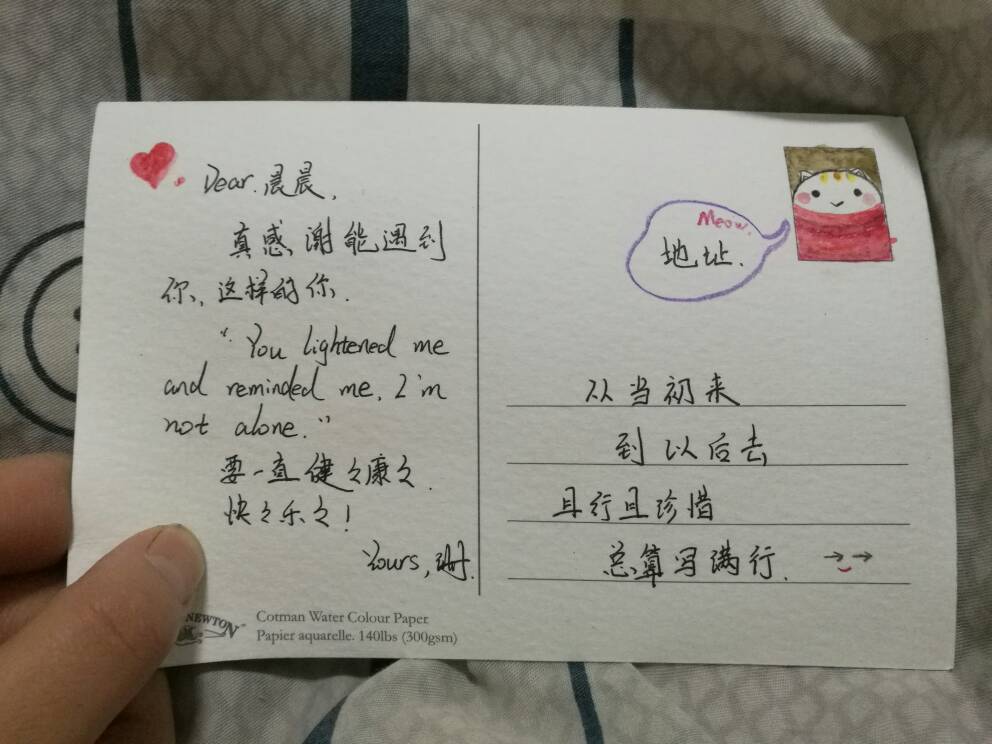 Dear. 晨晨,
真感谢能遇到
你, 这样的你.
"You lightened me
and reminded me, I'm
not alone."
要一直健々康々.
快々乐々!
Yours, 珊.
NEWTON™
Cotman Water Colour Paper
Papier aquarelle. 140lbs (300gsm)
Meow.
地址.
从当初来
到以后去
且行且珍惜
总算写满行.